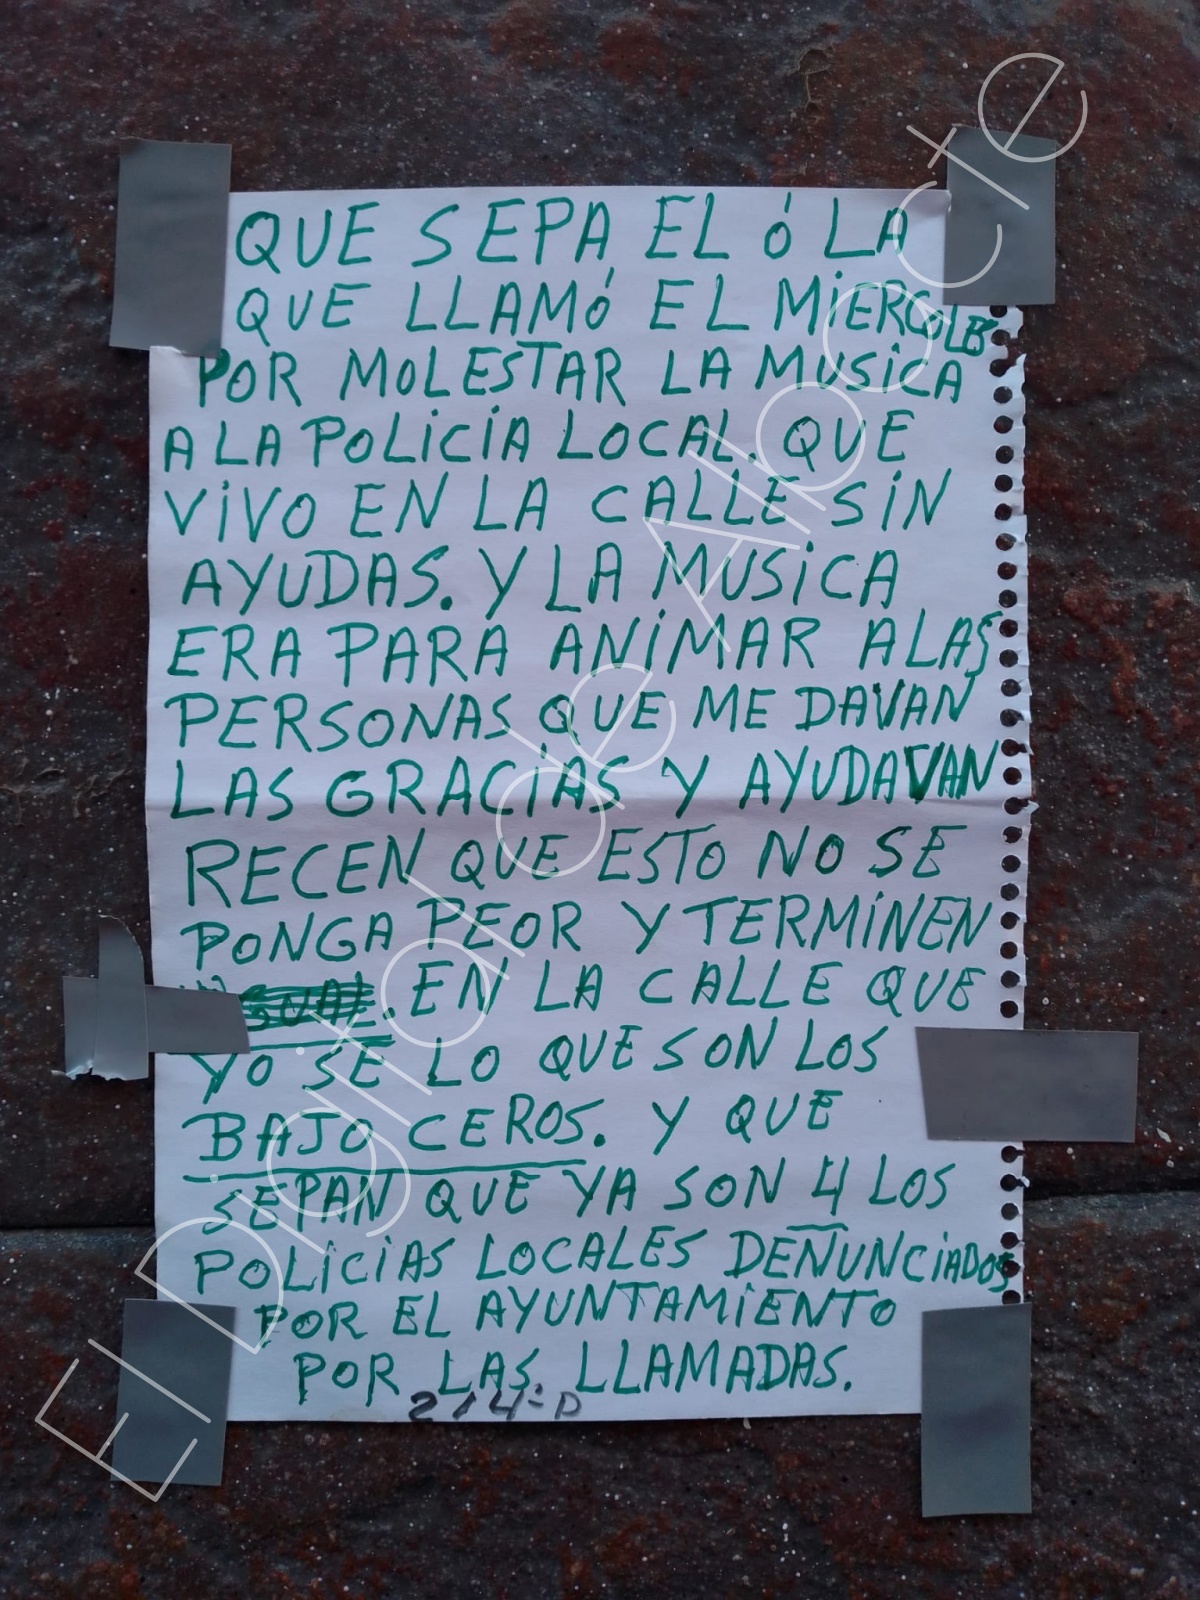 QUE SEPA EL Ó LA
QUE LLAMÓ EL MiERCOLES
POR MOLESTAR LA MUSiCA
A LA POLiCÍA LOCAL. QUE
ViVO EN LA CALLE SiN
AYUDAS. Y LA MUSiCA
ERA PARA ANiMAR A LAS
PERSONAS QUE ME DAVAN
LAS GRACÍAS Y AYUDAVAN
RECEN QUE ESTO NO SE
PONGA PEOR Y TERMiNEN
. EN LA CALLE QUE
YO SE LO QUE SON LOS
BAJO CEROS. Y QUE
SEPAN QUE YA SON 4 LOS
POLiCiAS LOCALES DEÑUNCiADOS
POR EL AYUNTAMiENTO
POR LAS LLAMADAS.
El Digital de Albacete